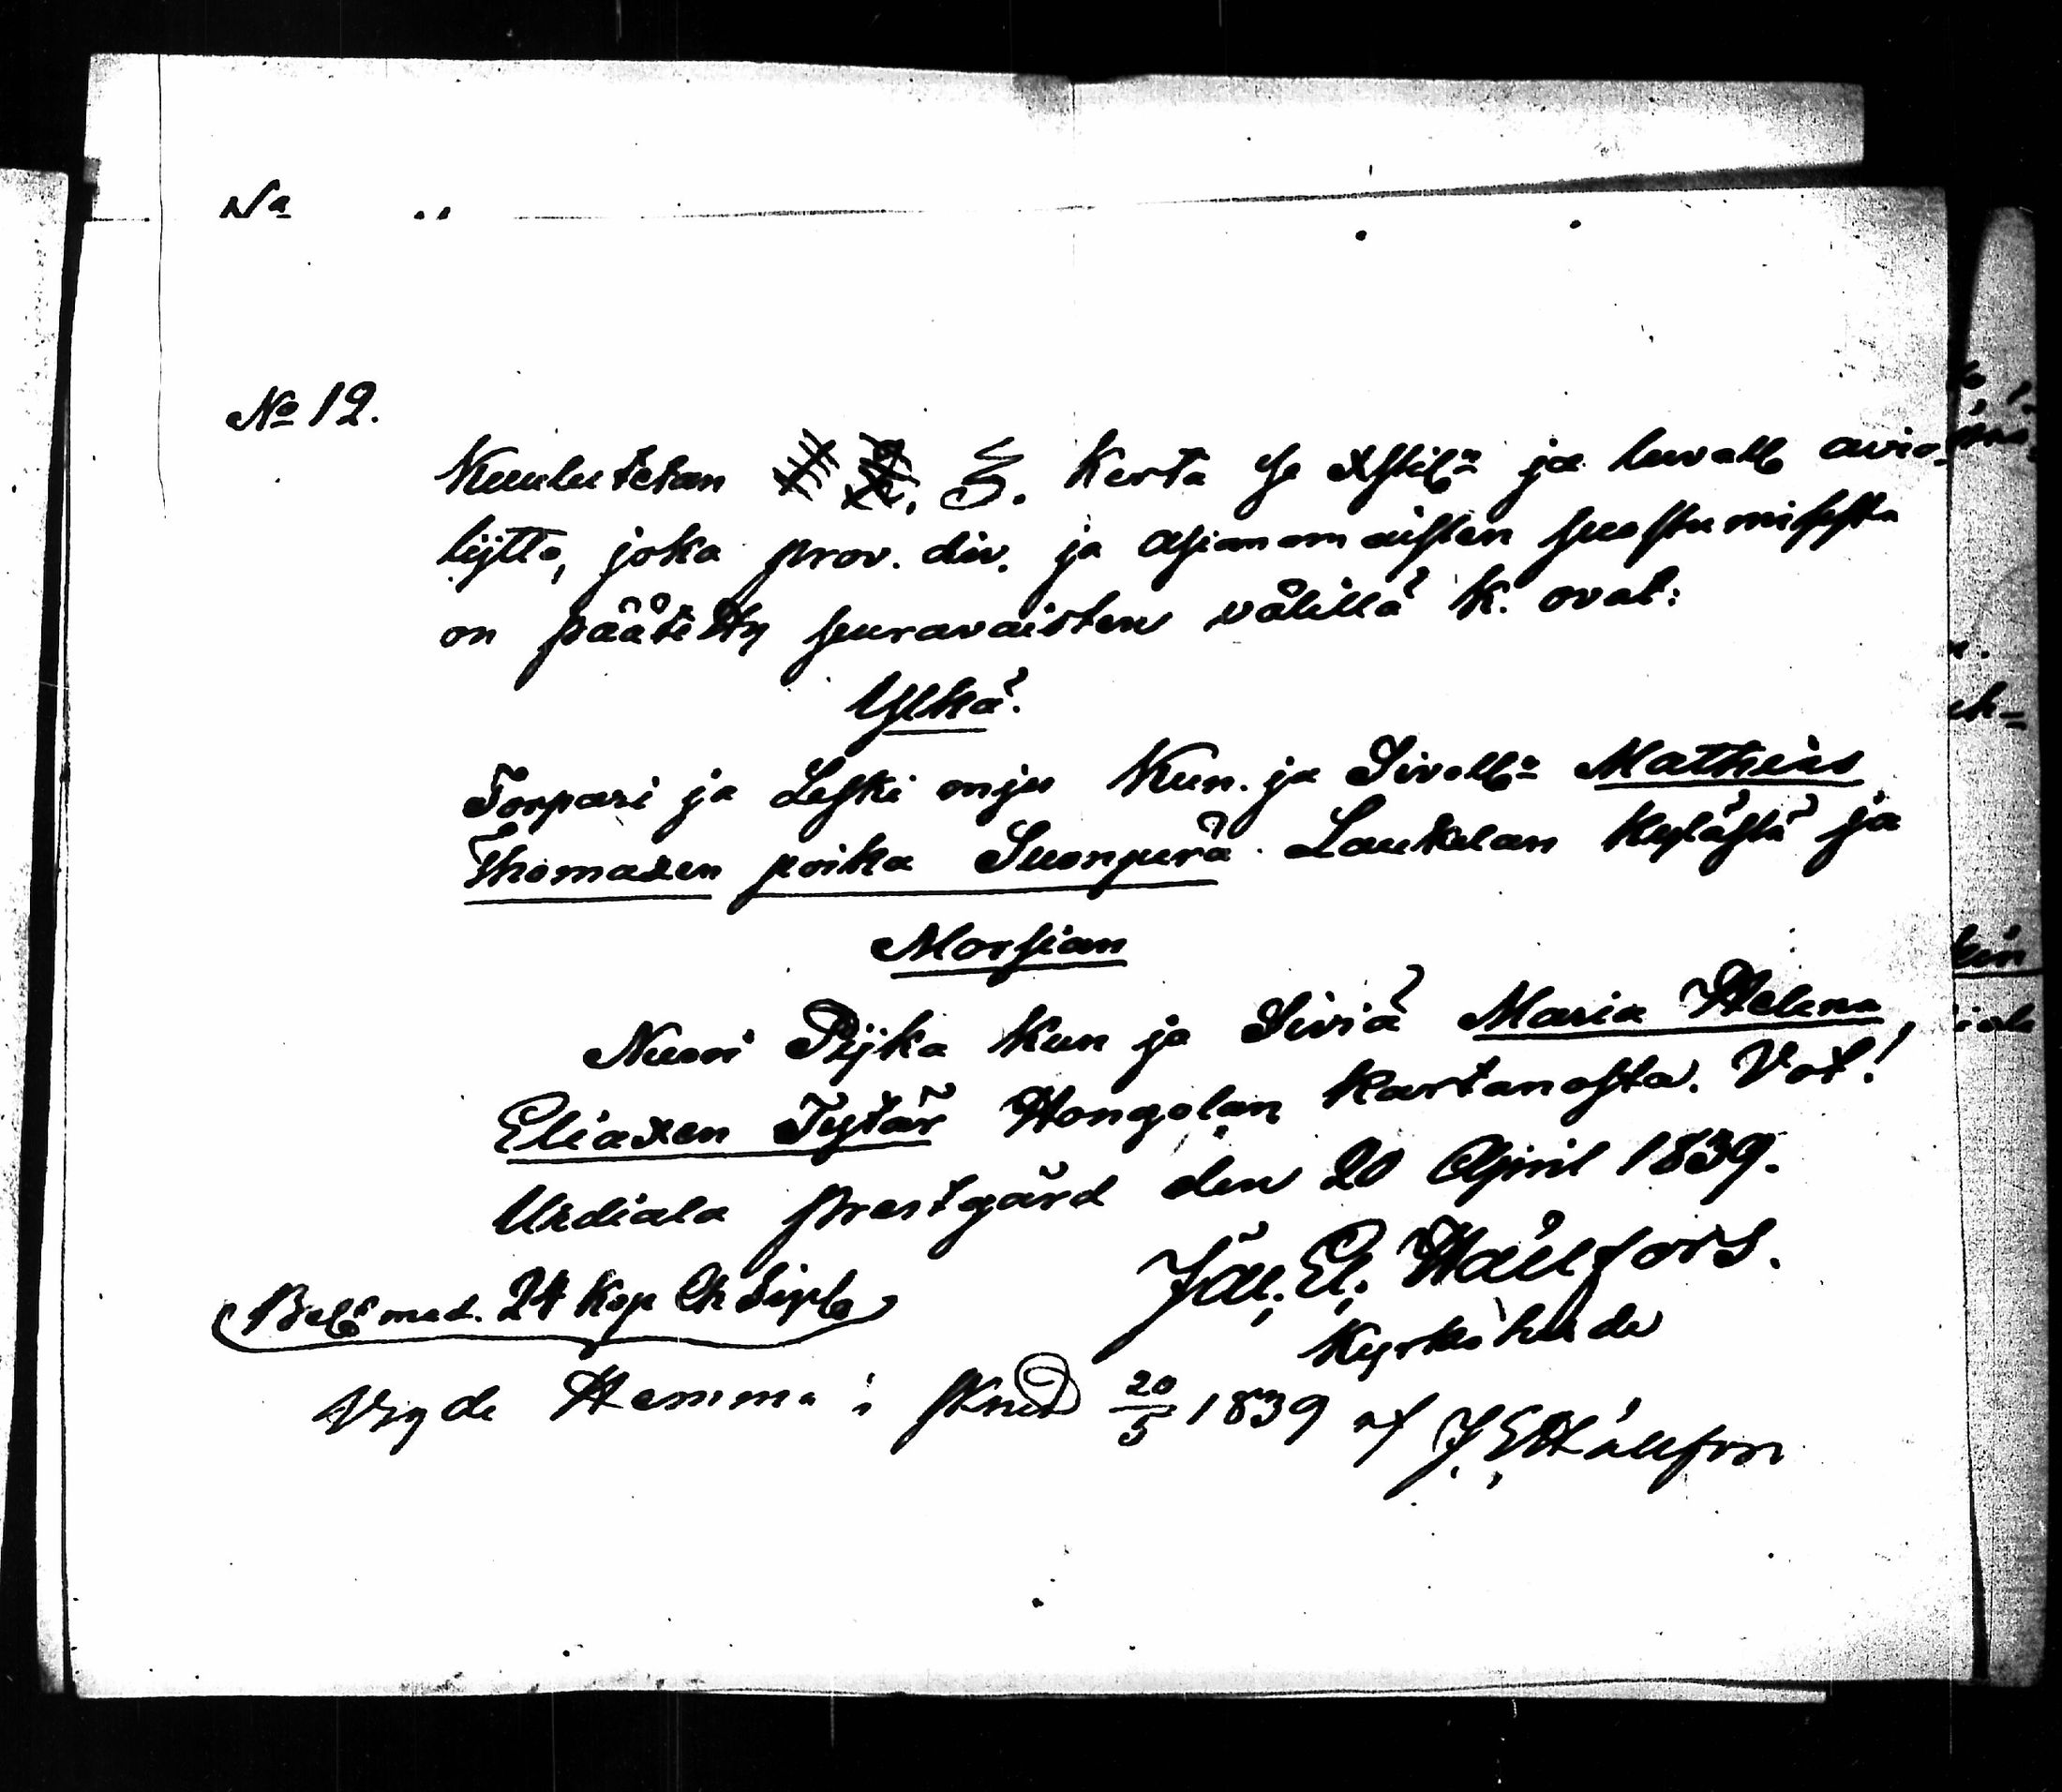 No
No 12.
Kuulutetan 3. Kerta se Xstil:n ja luvall avio-
lijtto, joka prov. div. ja asianomaisten suostumisesta
on päätetty seuravaisten välillä K. ovat:
Ylkä.
Torpari ja Leski mjes Kun. ja Sivoll:n Mathias
Thomaxen poika Suonperä Laukelan Kylästä ja
Morsian
Nuori Pijka Kun ja Siviä Maria Helena
Eliaxen Tytär Hongolan Kartanosta. Vot!
Urdiala prestgård den 20 April 1839.
Joh. El. Hällfors.
Kyrkoherde
Bel. med. 24 Kop Ch Sigle
Vigde Hemma i 20/5 1839 af J. E. Hällfors